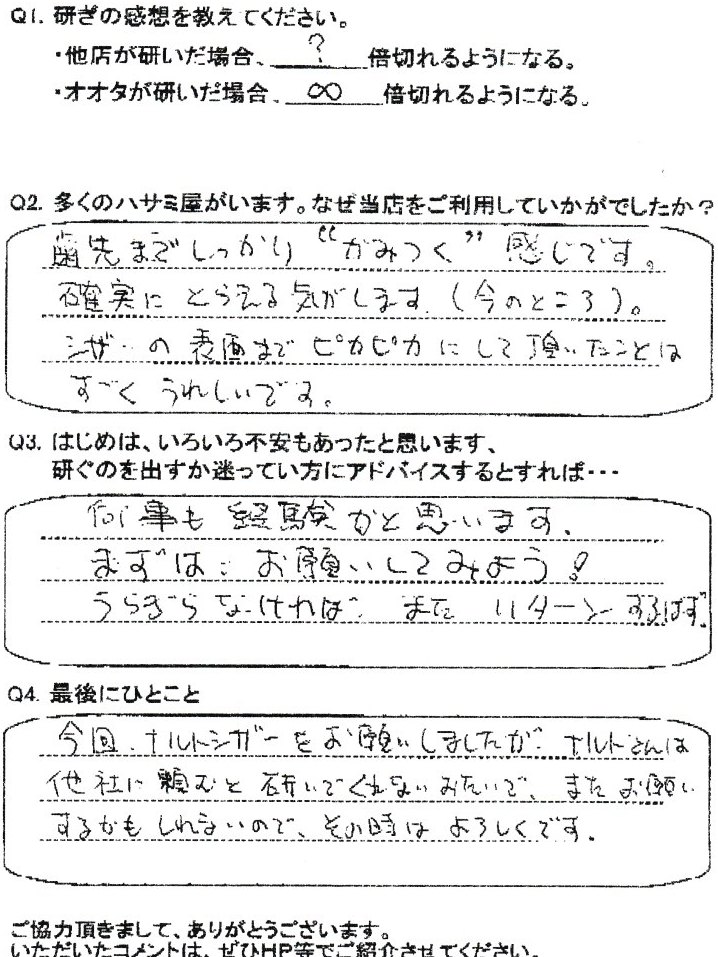 Q1. 研ぎの感想を教えてください。
・他店が研いだ場合、 ? 倍切れるようになる。
・オオタが研いだ場合、 ∞ 倍切れるようになる。
Q2. 多くのハサミ屋がいます。なぜ当店をご利用していかがでしたか？
歯先までしっかり“がみつく”感じです。
確実にとらえる気がします。(今のところ)。
シザーの表面までピカピカにして頂いたことは
すごくうれしいです。
Q3. はじめは、いろいろ不安もあったと思います、
研ぐのを出すか迷ってい方にアドバイスするとすれば・・・
何事も経験かと思います。
まずは、お願いしてみよう!
うらぎらなければ、またリターンするはず。
Q4. 最後にひとこと
今回、ナルトシザーをお願いしましたが、ナルトさんは
他社に頼むと研いでくれないみたいで、またお願い
するかもしれないので、その時はよろしくです。
ご協力頂きまして、ありがとうございます。
いただいたコメントは、ぜひHP等でご紹介させてください。